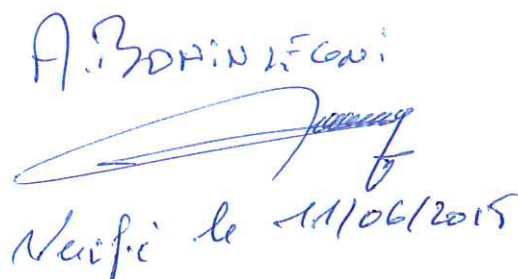 A. BOMINLÉGONI
Verifié le 11/06/2015